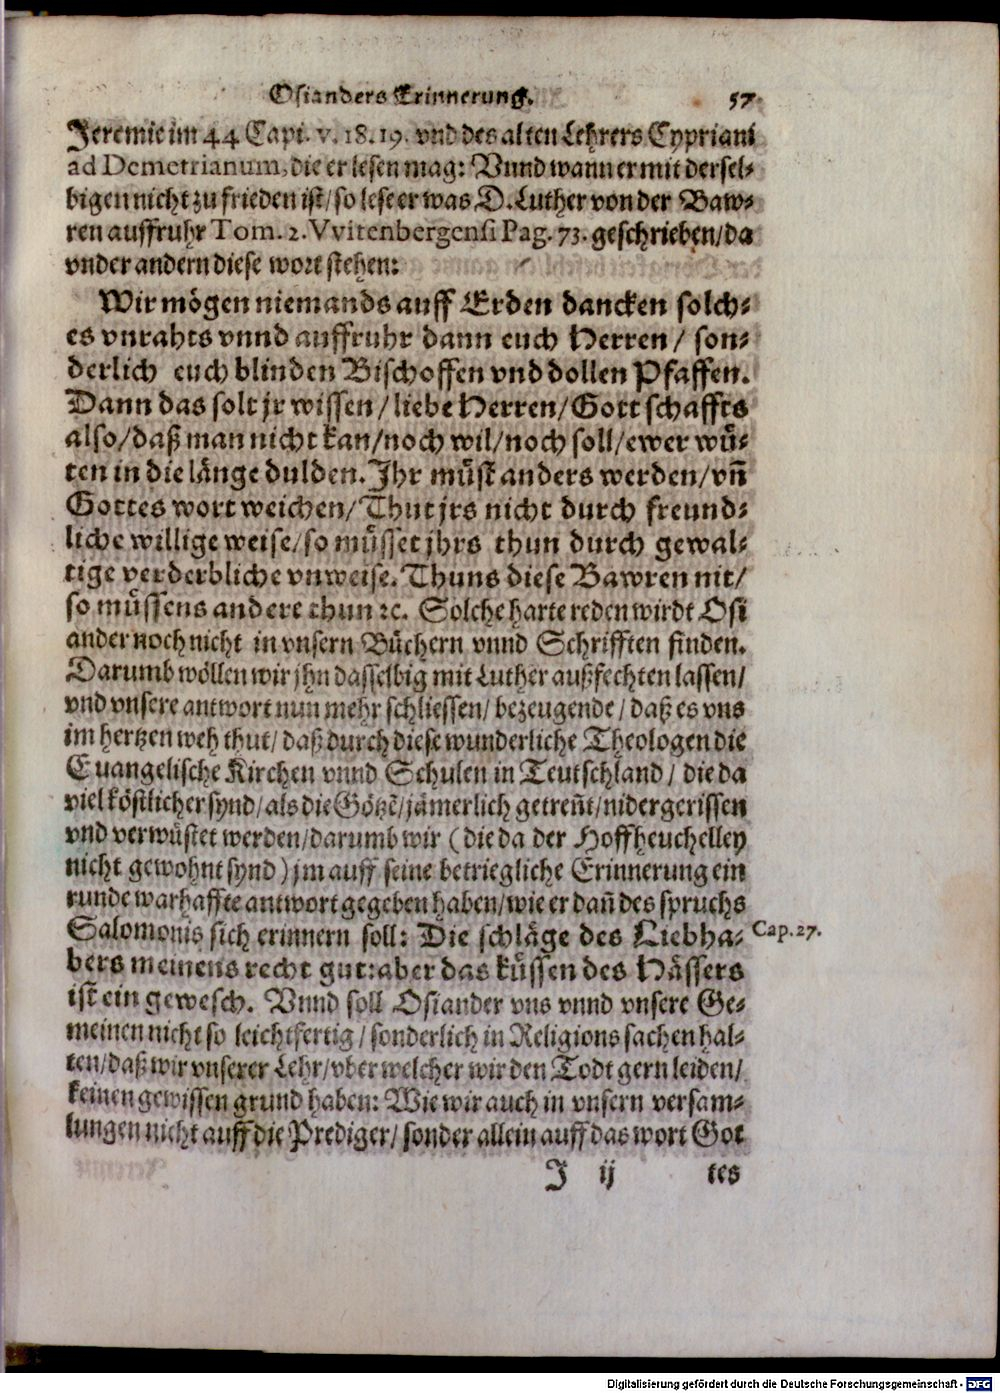 Osianders Erinnerung. 57
Jeremie im 44 Capi. v. 18. 19. vnd des alten Lehrers Cypriani
ad Demetrianum, die er lesen mag: Vnnd wann er mit dersel-
bigen nicht zu frieden ist/ so lese er was D. Luther von der Baw-
ren auffruhr Tom. 2. Vvitenbergensi Pag. 73. geschrieben/ da
vnder andern diese wort stehen:
Wir mögen niemands auff Erden dancken solch-
es vnrahts vnnd auffruhr dann euch Herren/ son-
derlich euch blinden Bischoffen vnd dollen Pfaffen.
Dann das solt jr wissen/ liebe Herren/ Gott schaffts
also/ daß man nicht kan/ noch wil/ noch soll/ ewer wü-
ten in die länge dulden. Ihr müst anders werden/ vñ
Gottes wort weichen/ Thut jrs nicht durch freund-
liche willige weise/ so müsset jhrs thun durch gewal-
tige verderbliche vnweise. Thuns diese Bawren nit/
so müssens andere thun ꝛc. Solche harte reden wirdt Osi
ander noch nicht in vnsern Büchern vnnd Schrifften finden.
Darumb wöllen wir jhn dasselbig mit Luther außfechten lassen/
vnd vnsere antwort nun mehr schliessen/ bezeugende/ daß es vns
im hertzen weh thut/ daß durch diese wunderliche Theologen die
Euangelische Kirchen vnnd Schulen in Teutschland/ die da
viel köstlicher synd/ als die Götzẽ/ jämerlich getreñt/ nidergerissen
vnd verwüstet werden/ darumb wir (die da der Hoffheuchelley
nicht gewohnt synd) jm auff seine betriegliche Erinnerung ein
runde warhaffte antwort gegeben haben/ wie er dañ des spruchs
Salomonis sich erinnern soll: Die schläge des Liebha- Cap. 27.
bers meinens recht gut: aber das küssen des Hässers
ist ein gewesch. Vnnd soll Osiander vns vnnd vnsere Ge-
meinen nicht so leichtfertig/ sonderlich in Religions sachen hal-
ten/ daß wir vnserer Lehr/ vber welcher wir den Todt gern leiden/
keinen gewissen grund haben: Wie wir auch in vnsern versam-
lungen nicht auff die Prediger/ sonder allein auff das wort Got
J ij tes
Digitalisierung gefördert durch die Deutsche Forschungsgemeinschaft - DFG